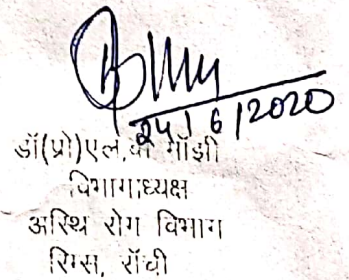 24/6/2020
डॉ(प्रो)एल.बी माँझी
विभागाध्यक्ष
अस्थि रोग विभाग
रिम्स, राँची